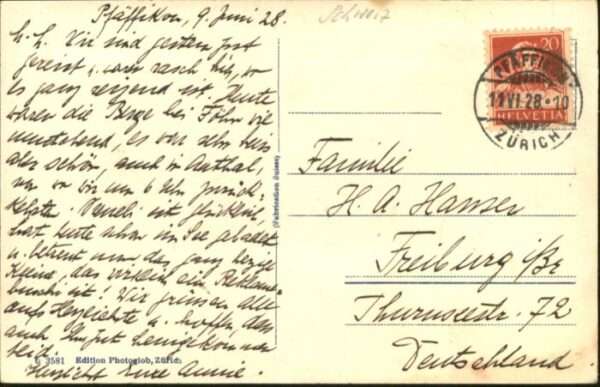 Pfäffikon, 9. Juni 28.
Schweiz
L. L. Wir sind gestern gut
gereist u. waren rasch hier, wo
es ganz reizend ist. Heute
waren die Berge bei Föhn
es war sehr
aber schön, auch in Aathal,
wo wir um 6 Uhr zurück-
kehrten. Vreneli ist glücklich,
hat heute schon im See gebadet
u. betreut nun das ganz herzige
Kleine, das wirklich ein Reklame-
ist! Wir grüssen alle
aufs Herzlichste u. hoffen, dass
auch Ihr gut
seid.
Herzlichst Eure Annie.
G 3581 Edition Photoglob, Zürich
(Fabrication Suisse)
20
HELVETIA
PFÄFFIKON
11 VI 28 • 10
ZÜRICH
Familie
H. A. Hanser
Freiburg i/Br
Thurnseestr. 72
Deutschland.